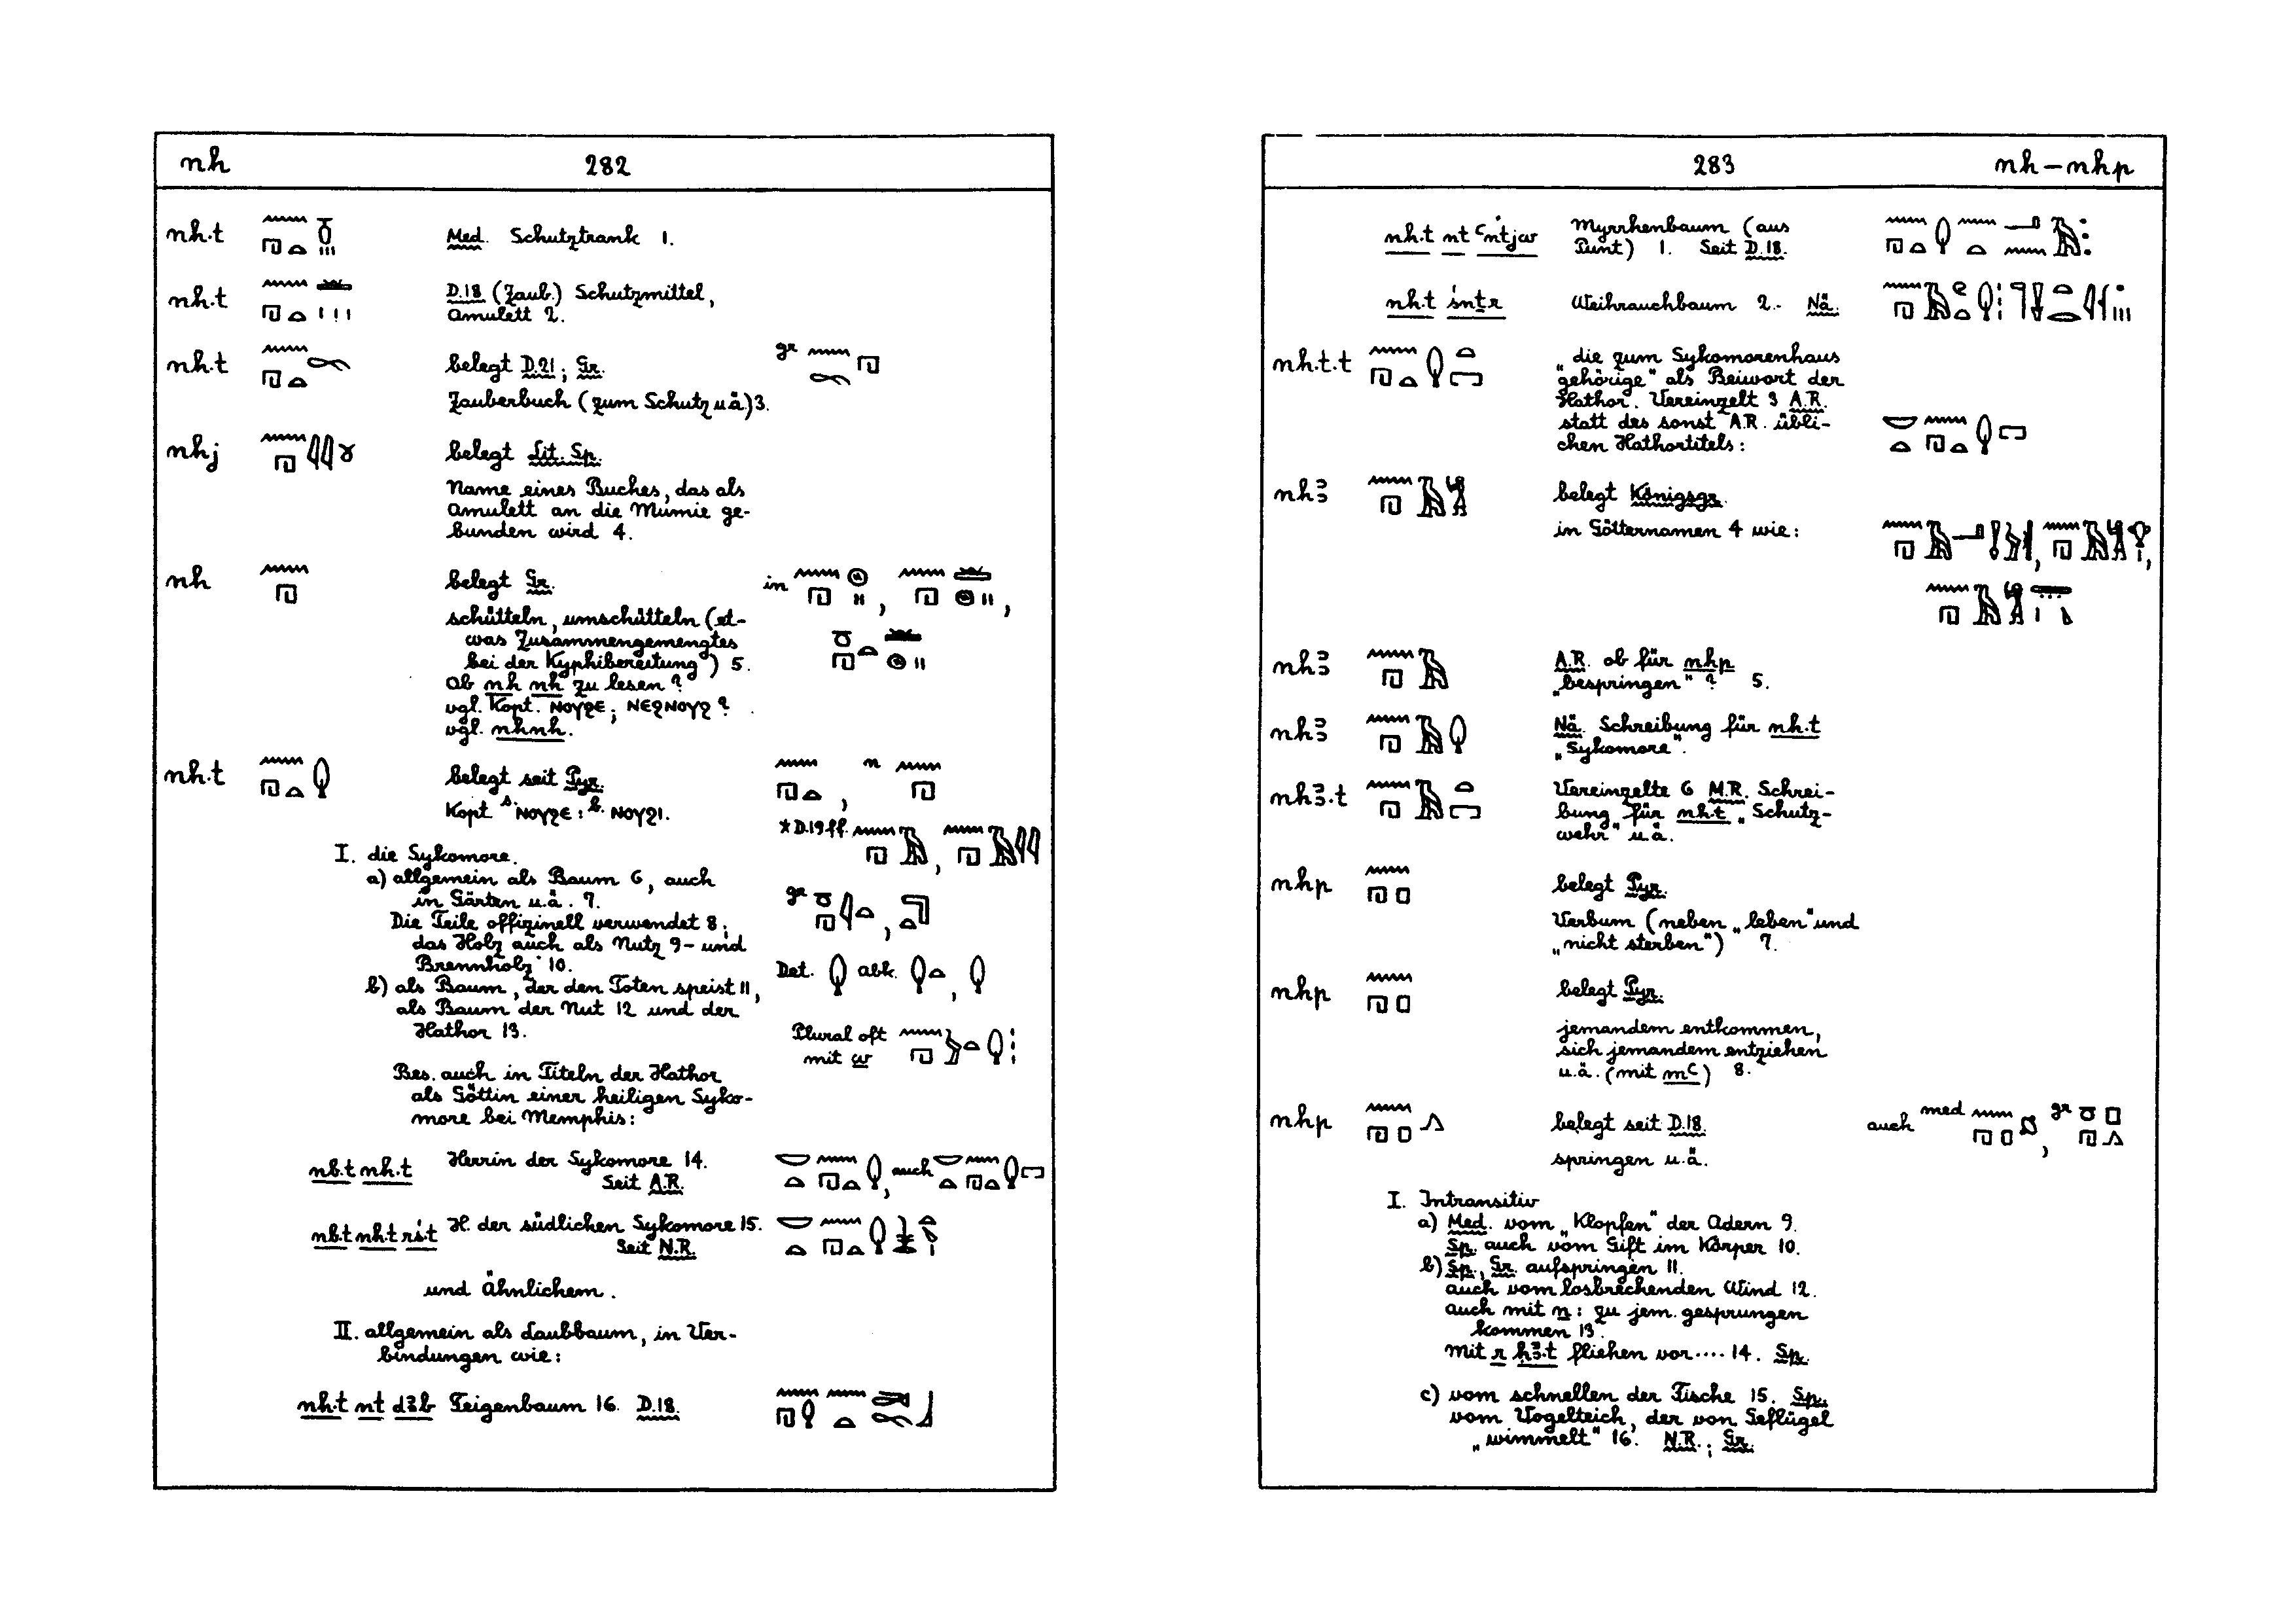 nh 282
nh·t Med. Schutztrank 1.
nh·t D.18 (Zaub.) Schutzmittel,
Amulett 2.
nh·t belegt D.21; Gr. gr
Zauberbuch (zum Schutz u.ä) 3.
nhj belegt Lit. Sp.
Name eines Buches, das als
Amulett an die Mumie ge-
bunden wird 4.
nh belegt Gr. in
schütteln, umschütteln (et-
was Zusammengemengtes
bei der Kyphibereitung) 5.
Ob nh nh zu lesen?
vgl. Kopt. ⲚⲞⲨϨⲈ; ⲚⲈϨⲚⲞⲨϨ?
vgl. nhnh.
nh·t belegt seit Pyr. n
Kopt s. ⲚⲞⲨϨⲈ: b. ⲚⲞⲨϨⲒ.
*D.19ff.
I. die Sykomore.
a) allgemein als Baum 6, auch
in Gärten u.ä. 7. gr
Die Teile offizinell verwendet 8;
das Holz auch als Nutz 9- und
Brennholz 10. Det. abk.
b) als Baum, der den Toten speist 11,
als Baum der Nut 12 und der
Hathor 13. Plural oft
mit w
Bes. auch in Titeln der Hathor
als Göttin einer heiligen Syko-
more bei Memphis:
nb·t nh·t Herrin der Sykomore 14. auch
Seit A.R.
nb·t nh·t rś·t H. der südlichen Sykomore 15.
Seit N.R.
und Ähnlichem.
II. allgemein als Laubbaum, in Ver-
bindungen wie:
nh·t nt dꜣb Feigenbaum 16. D.18.
283 nh – nhp
nh·t nt ꜥntjw Myrrhenbaum (aus
Punt) 1. Seit D.18.
nh·t śnṯr Weihrauchbaum 2. Nä.
nh·t.t „die zum Sykomorenhaus
gehörige“ als Beiwort der
Hathor. Vereinzelt 3 A.R.
statt des sonst A.R. übli-
chen Hathortitels:
nhꜣ belegt Königsgr.
in Götternamen 4 wie:
nhꜣ A.R. ob für nhp
„bespringen“? 5.
nhꜣ Nä. Schreibung für nh·t
„Sykomore“.
nhꜣ·t Vereinzelte 6 M.R. Schrei-
bung für nh·t „Schutz-
wehr“ u.ä.
nhp belegt Pyr.
Verbum (neben „leben“ und
„nicht sterben“) 7.
nhp belegt Pyr.
jemandem entkommen,
sich jemandem entziehen
u.ä. (mit mꜥ) 8.
nhp belegt seit D.18. auch med gr
springen u.ä.
I. Intransitiv
a) Med. vom „Klopfen“ der Adern 9.
Sp. auch vom Gift im Körper 10.
b) Sp., Gr. aufspringen 11.
auch vom losbrechenden Wind 12.
auch mit n: zu jem. gesprungen
kommen 13.
mit r ḥꜣ·t fliehen vor.... 14. Sp.
c) vom schnellen der Fische 15. Sp.,
vom Vogelteich, der von Geflügel
„wimmelt“ 16. N.R.; Gr.